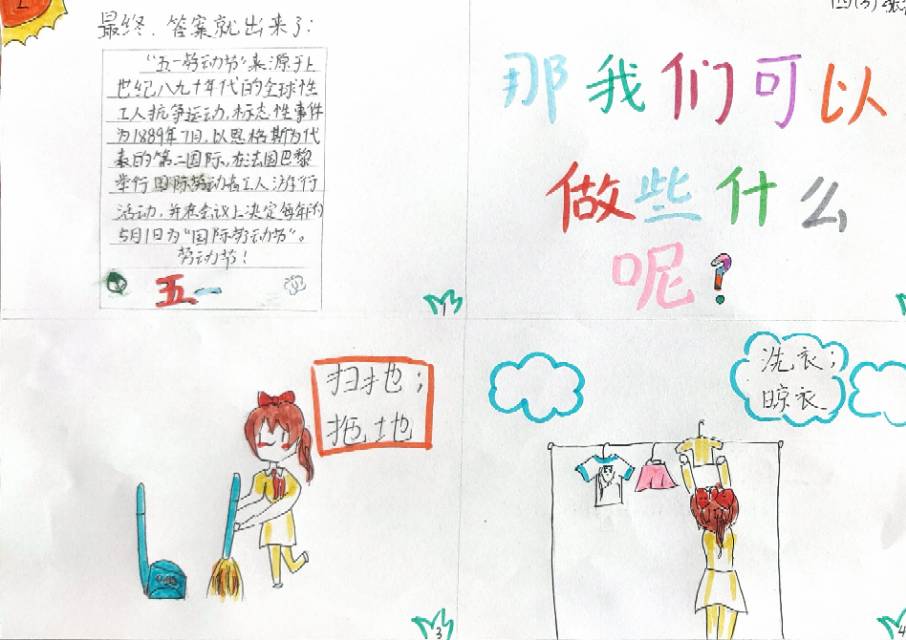 最终,答案就出来了:
"五一劳动节"来源于上
世纪八九十年代的全球性
工人抗争运动,标志性事件
为1889年7月,以恩格斯为代
表的第二国际,在法国巴黎
举行国际劳动者工人游行
活动,并在会议上决定每年的
5月1日为"国际劳动节"。
劳动节!
五一
1
四(3)
那我们可以
做些什么
呢?
扫地;
拖地
3
洗衣;
晾衣
4